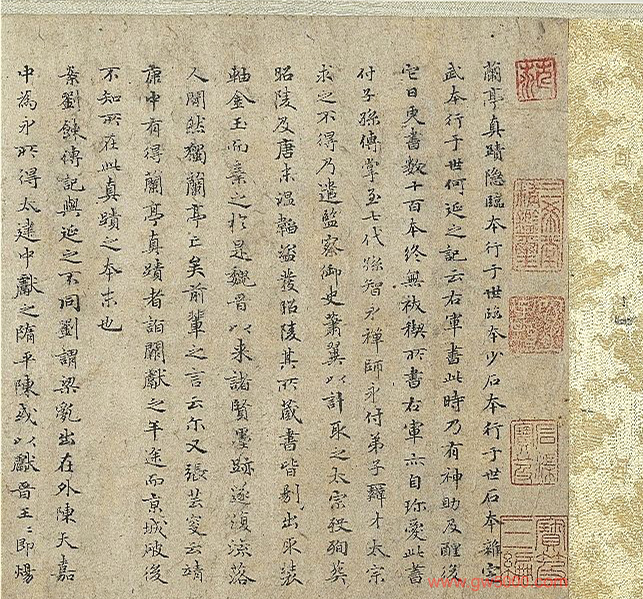 蘭亭真蹟隐臨本行于世臨本少石本行于世石本雜定
武本行于世何延之記云右軍書此時乃有神助及醒後
它日更書數十百本終無袚稧所書右軍亦自珍愛此書
付子孫傳掌至七代孫智永禅師永付弟子辯才太宗
求之不得乃遣監察御史蕭翼以計取之太宗殁殉葬
昭陵及唐末温韜盗發昭陵其所藏書皆剔出取装
軸金玉而棄之於是魏晋以来諸賢墨跡遂復流落
人間然獨蘭亭亡矣前輩之言云尔又張芸叟云靖
康中有得蘭亭真蹟者詣闕獻之半途而京城破後
不知所在此真蹟之本末也
案劉餗傳記與延之不同劉謂梁亂出在外陳天嘉
中為永所得太建中獻之隋平陳或以獻晋王王即煬